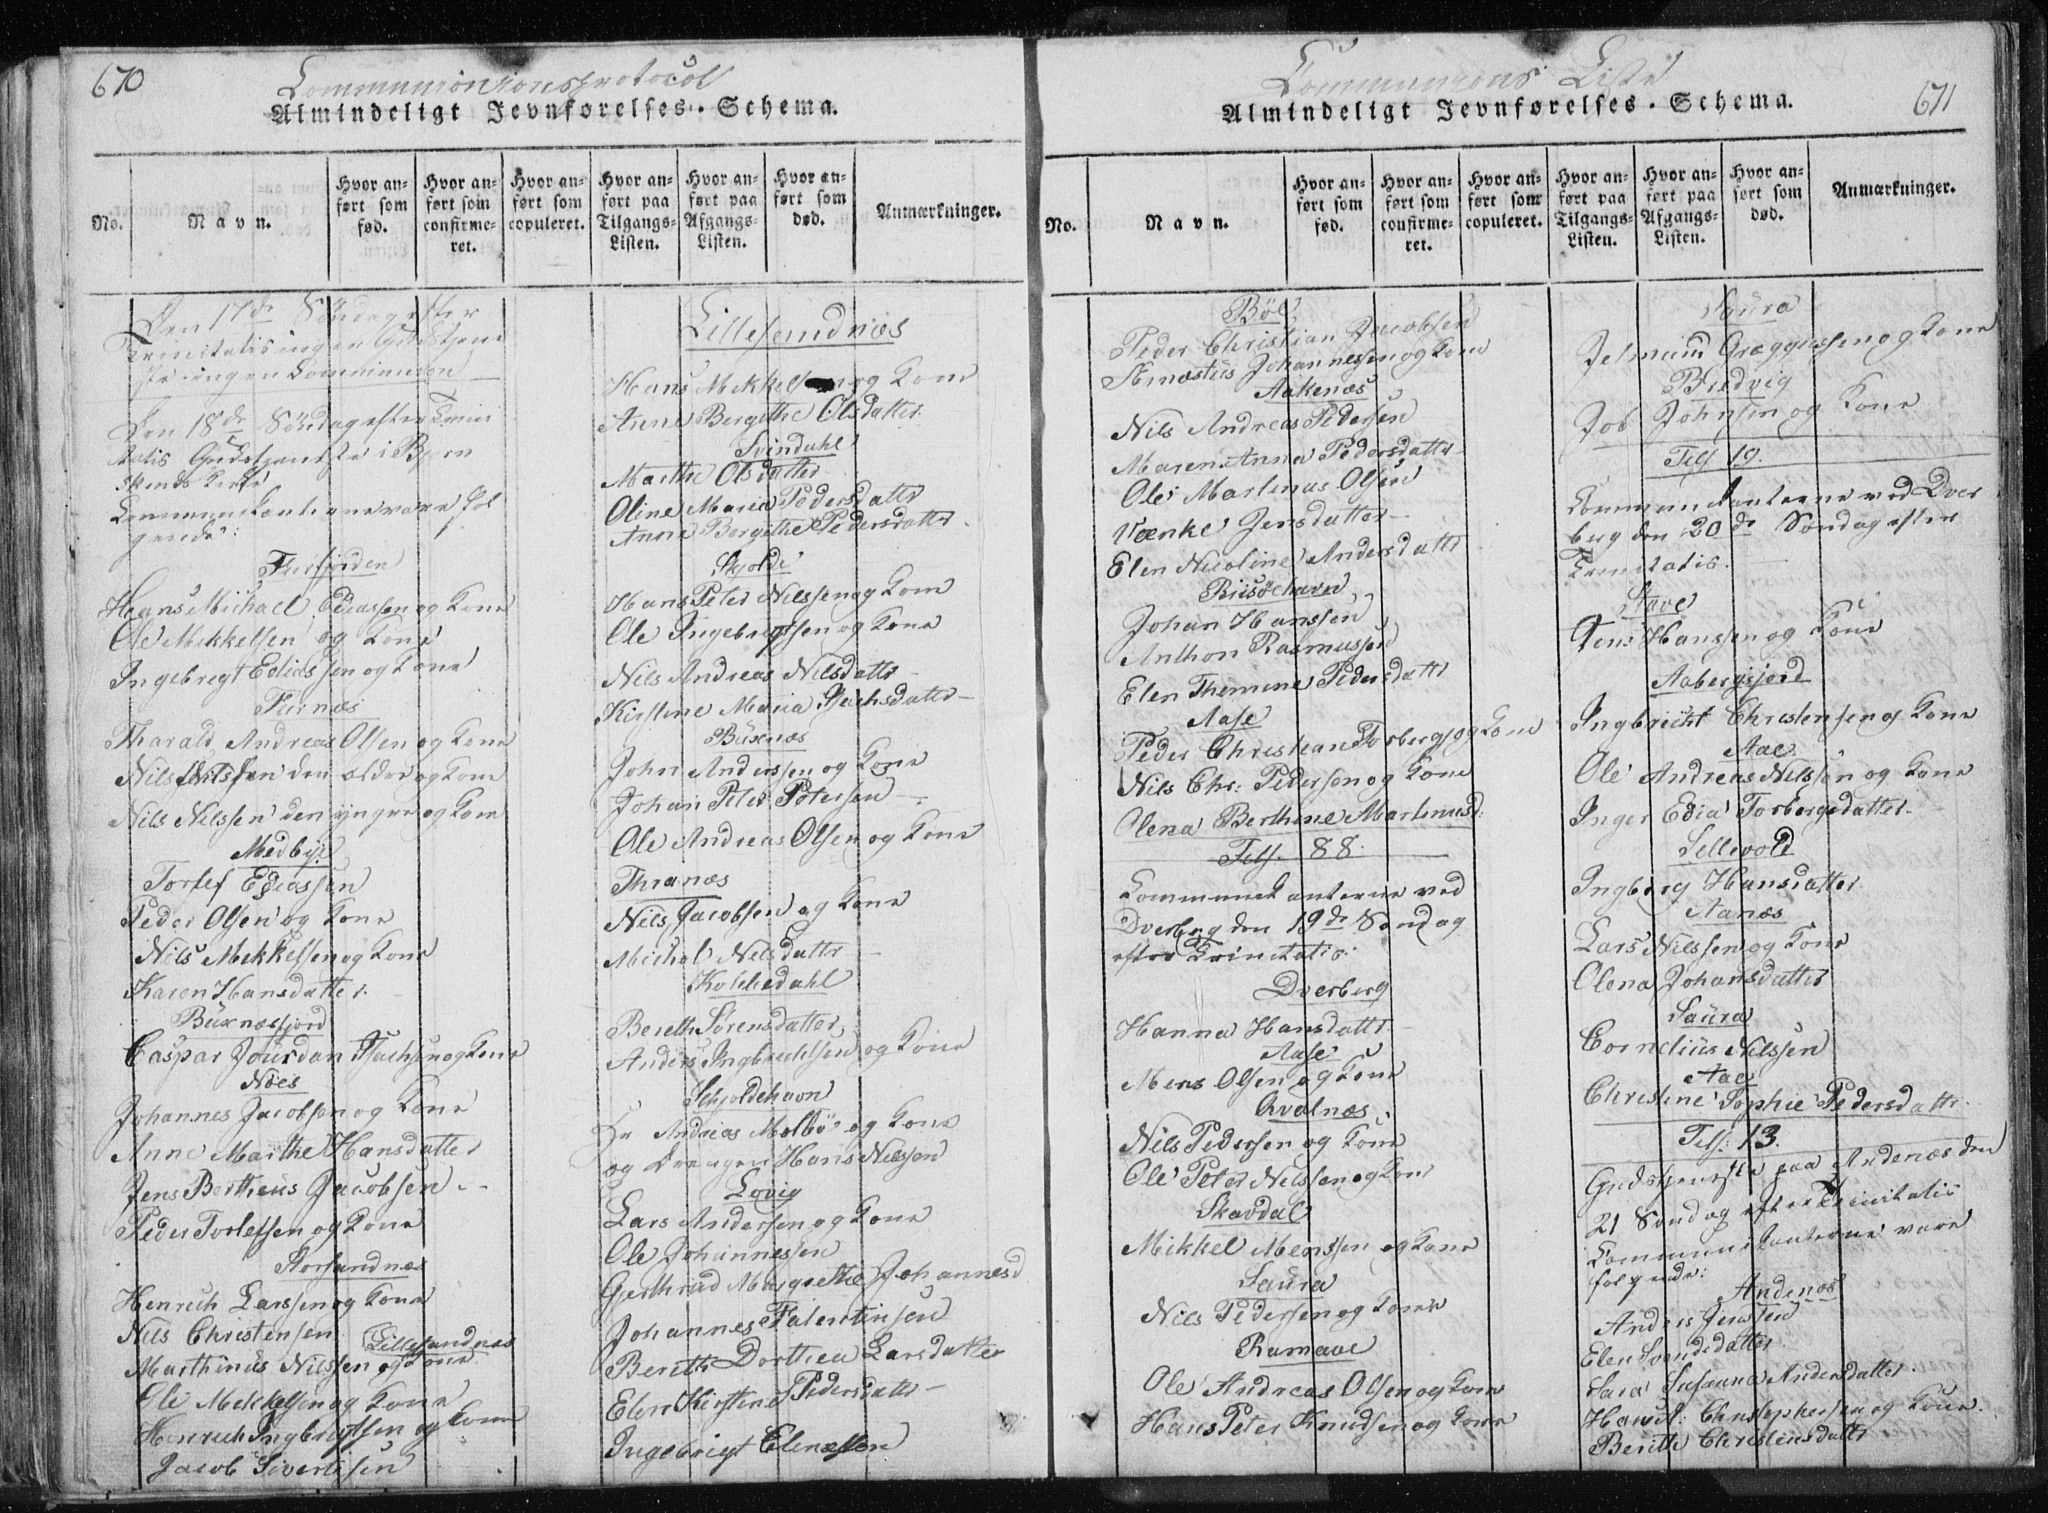 670
Communionsprotocol
Almindeligt Jevnførelses-Schema.
No.
Navn.
Hvor anført som fød.
Hvor anført som confirmeret.
Hvor anført som copuleret.
Hvor anført paa Tilgangs-Listen.
Hvor anført paa Afgangs-Listen.
Hvor anført som død.
Anmærkninger.
Den 17de Søndag efter
Trinitatis ingen Gudstjene
ste ingen Communion
Den 18de Søndag efter Trini
tatis Gudstjeneste i Bjørn
skinds Kirke
Communikanterne vare føl
gende:
Fiirfjorden
Hans Michael Ediassen og Kone
Ole Mikkelsen og Kone
Ingebrigt Ediassen og Kone
Fiirnæs
Tharald Andreas Olsen og Kone
Nils Nilssen den ældre og Kone
Nils Nilssen den yngre og Kone
Medbye
Torlef Ediassen
Peder Olsen og Kone
Nils Mikkelsen og Kone
Karen Hansdatter
Buxnæsfjord
Caspar Jourdan og Kone
Næs
Johannes Jacobsen og Kone
Anne Marthe Hansdatter
Jens Bertheus Jacobsen
Peder Torlefsen og Kone
Storsandnæs
Henrich Larssen og Kone
Nils Christensen
Lillesandnæs
Marthinus Nilssen og Kone
Ole Mikkelsen og Kone
Henrich Ingbrigtsen og Kone
Jacob Sivertsen
Lillesandnæs
Hans Mikkelsen og Kone
Anne Bergithe Olsdatter
Svindahl
Marthe Olsdatter
Oline Maria Pedersdattr
Anne Bergithe Pedersdattr
Skjolde
Hans Peter Nilssen og Kone
Ole Ingebrigtsen og Kone
Nils Andreas Nilsdattr
Kirstine Maria
Buxnæs
John Anderssen og Kone
Johan Peter Petersen
Ole Andreas Olsen og Kone
Thranæs
Nils Jacobsen og Kone
Michel Nilsdattr
Kobbedahl
Bereth Sørensdatter
Anders Ingbrechtsen og Kone
Skjoldehavn
Hr Andreas Molbö og Kone
og Drengen Hans Nilssen
Lovig
Lars Andersen og Kone
Ole Johannessen
Gerthrud Margrethe Johannesd
Johannes Falentinsen
Bereth Dorthea Larsdatter
Elen Kirstine Pedersdattr
Ingebrigt
671
Communions Liste
Almindeligt Jevnførelses-Schema.
No.
Navn.
Hvor anført som fød.
Hvor anført som confirmeret.
Hvor anført som copuleret.
Hvor anført paa Tilgangs-Listen.
Hvor anført paa Afgangs-Listen.
Hvor anført som død.
Anmærkninger.
Böe
Peder Christian Jacobsen
Johannessen og Kone
Aakenæs
Nils Andreas Pedersen
Maren Anna Pedersdattr
Ole Martinus Olsen
Jensdatter
Elen Nicoline Andersdattr
Riisöehavn
Johan Hanssen
Anthon Rasmussen
Elen Pedersdattr
Aase
Peder Christian og Kone
Nils Chr: Pedersen og Kone
Olena Berthine Martinusd:
Tils. 88.
Communicanterne ved
Dverberg den 19de Søndag
efter Trinitatis.
Dverberg
Hanna Hansdattr
Aase
Mons Olsen og Kone
Qvalnæs
Nils Pedersen og Kone
Ole Peter Nilssen og Kone
Skavdal
Mikkel Monssen og Kone
Saura
Nils Pedersen og Kone
Ramaae
Ole Andreas Olsen og Kone
Hans Peter Knudsen og Kone
Saura
og Kone
Bredvig
Job Johnsen og Kone
Tils 19.
Communicanterne ved Dver
berg den 20de Søndag efter
Trinitatis.
Stave
Jens Hanssen og Kone
Aabergsjord
Ingbricht Christensen og Kone
Aae
Ole Andreas Nilssen og Kone
Inger Edia Torbergsdatter
Sellevold
Ingborg Hansdatter
Aanæs
Lars Nilssen og Kone
Olena Johansdatter
Saura
Cornelius Nilssen
Aae
Christine Sophie Pedersdattr
Tils: 13.
Gudstjeneste paa Andenæs den
21 Søndag efter Trinitatis
Communikanterne vare
følgende:
Andenæs
Anders Jenssen
Elen Svendsdatter
Sara Susanna Andersdatter
Christophersen og Kone
Berith Christensdattr